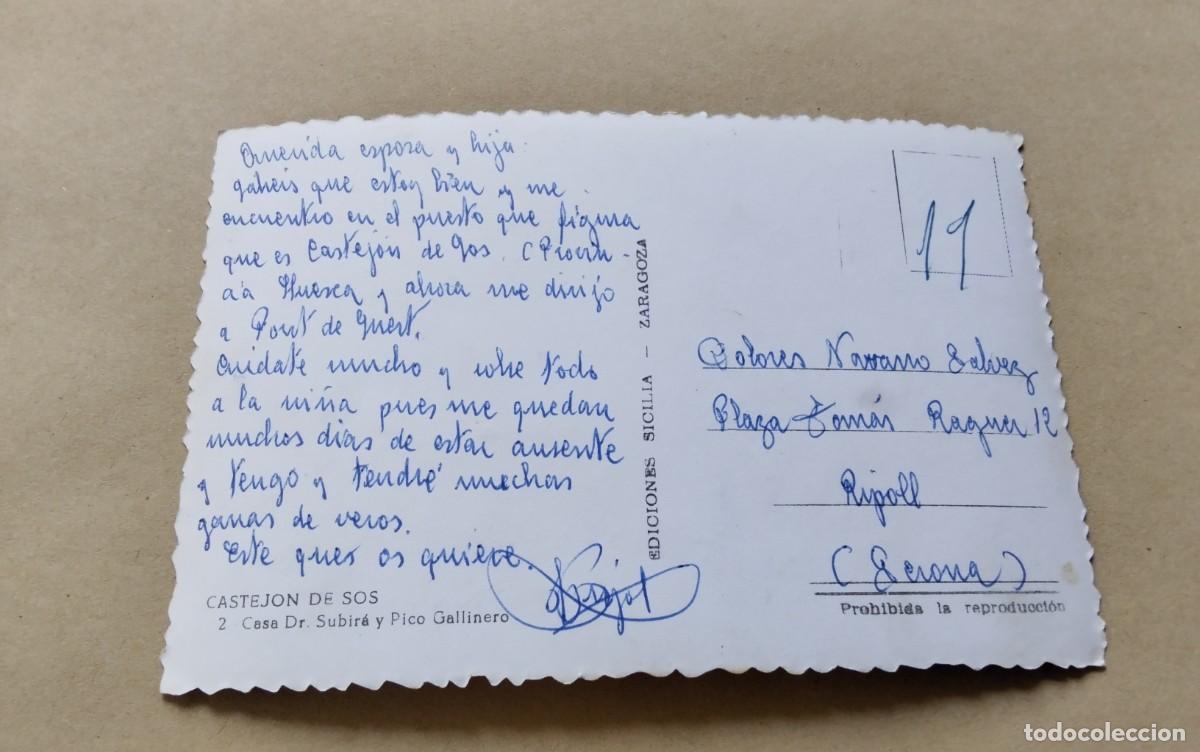 Querida esposa y hija:
sabeis que estoy bien y me
encuentro en el puesto que figura
que es Castejón de Sos. (Provin-
cia Huesca y ahora me dirijo
a Pont de Suert.
Cuidate mucho y sobre todo
a la niña pues me quedan
muchos dias de estar ausente
y tengo y tendré muchas
ganas de veros.
Este ques os quiere.
CASTEJON DE SOS
2 Casa Dr. Subirá y Pico Gallinero
EDICIONES SICILIA - ZARAGOZA
11
Dolores Navarro Galvez
Plaza Tomás Raguer 12
Ripoll
(Gerona)
Prohibida la reproducción
todocoleccion